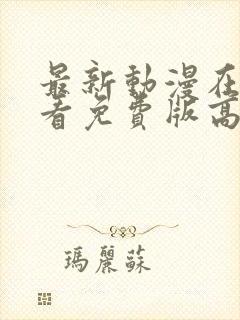 最新動漫在
看免費版高
瑪麗蘇